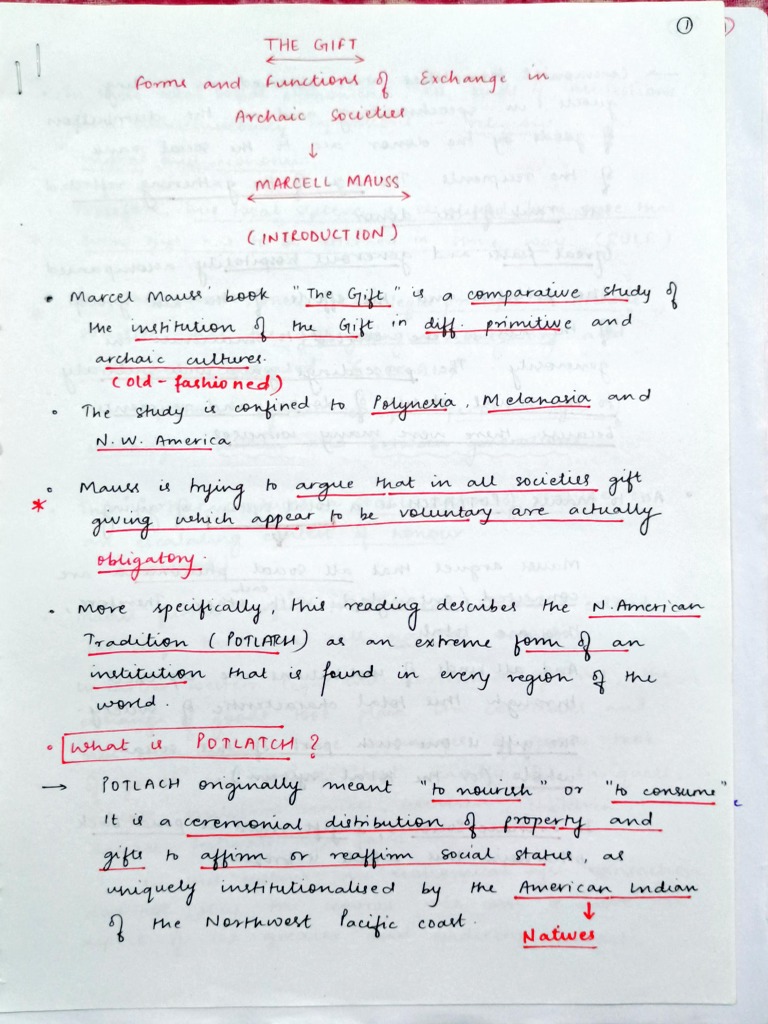 1
THE GIFT
Forms and Functions of Exchange in
Archaic Societies
↓
MARCELL MAUSS
(INTRODUCTION)
• Marcel Mauss' book "The Gift" is a comparative study of
the institution of the Gift in diff. primitive and
archaic cultures.
(old-fashioned)
• The study is confined to Polynesia, Melanasia and
N.W. America
• Mauss is trying to argue that in all societies gift
* giving which appear to be voluntary are actually
obligatory.
• More specifically, this reading describes the N.American
Tradition (POTLARH) as an extreme form of an
institution that is found in every region of the
world.
• What is POTLATCH?
→ POTLACH originally meant "to nourish" or "to consume"
It is a ceremonial distribution of property and
gifts to affirm or reaffirm social status, as
uniquely institutionalised by the American Indian
of the Northwest Pacific coast.
↓
Natives